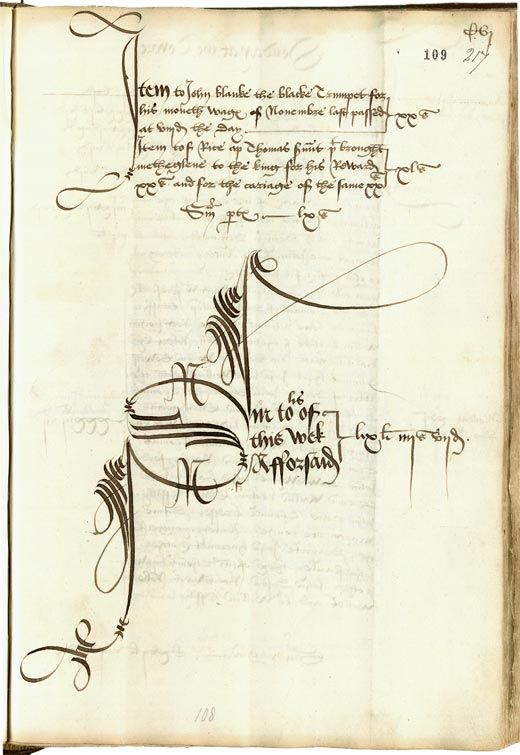 109
217
Item to John Blanke the blacke Trumpet for
his moneth wages of Novembre last passed xxs
at viijd the day
Item to Rice ap Thomas sunt þt brought
metheglene to the king for his Reward xls
xxs and for the cariage of the same xxs
Sm ptz lxs
Sm tols of
this wek lixli iijs viijd
Afforsaid
108